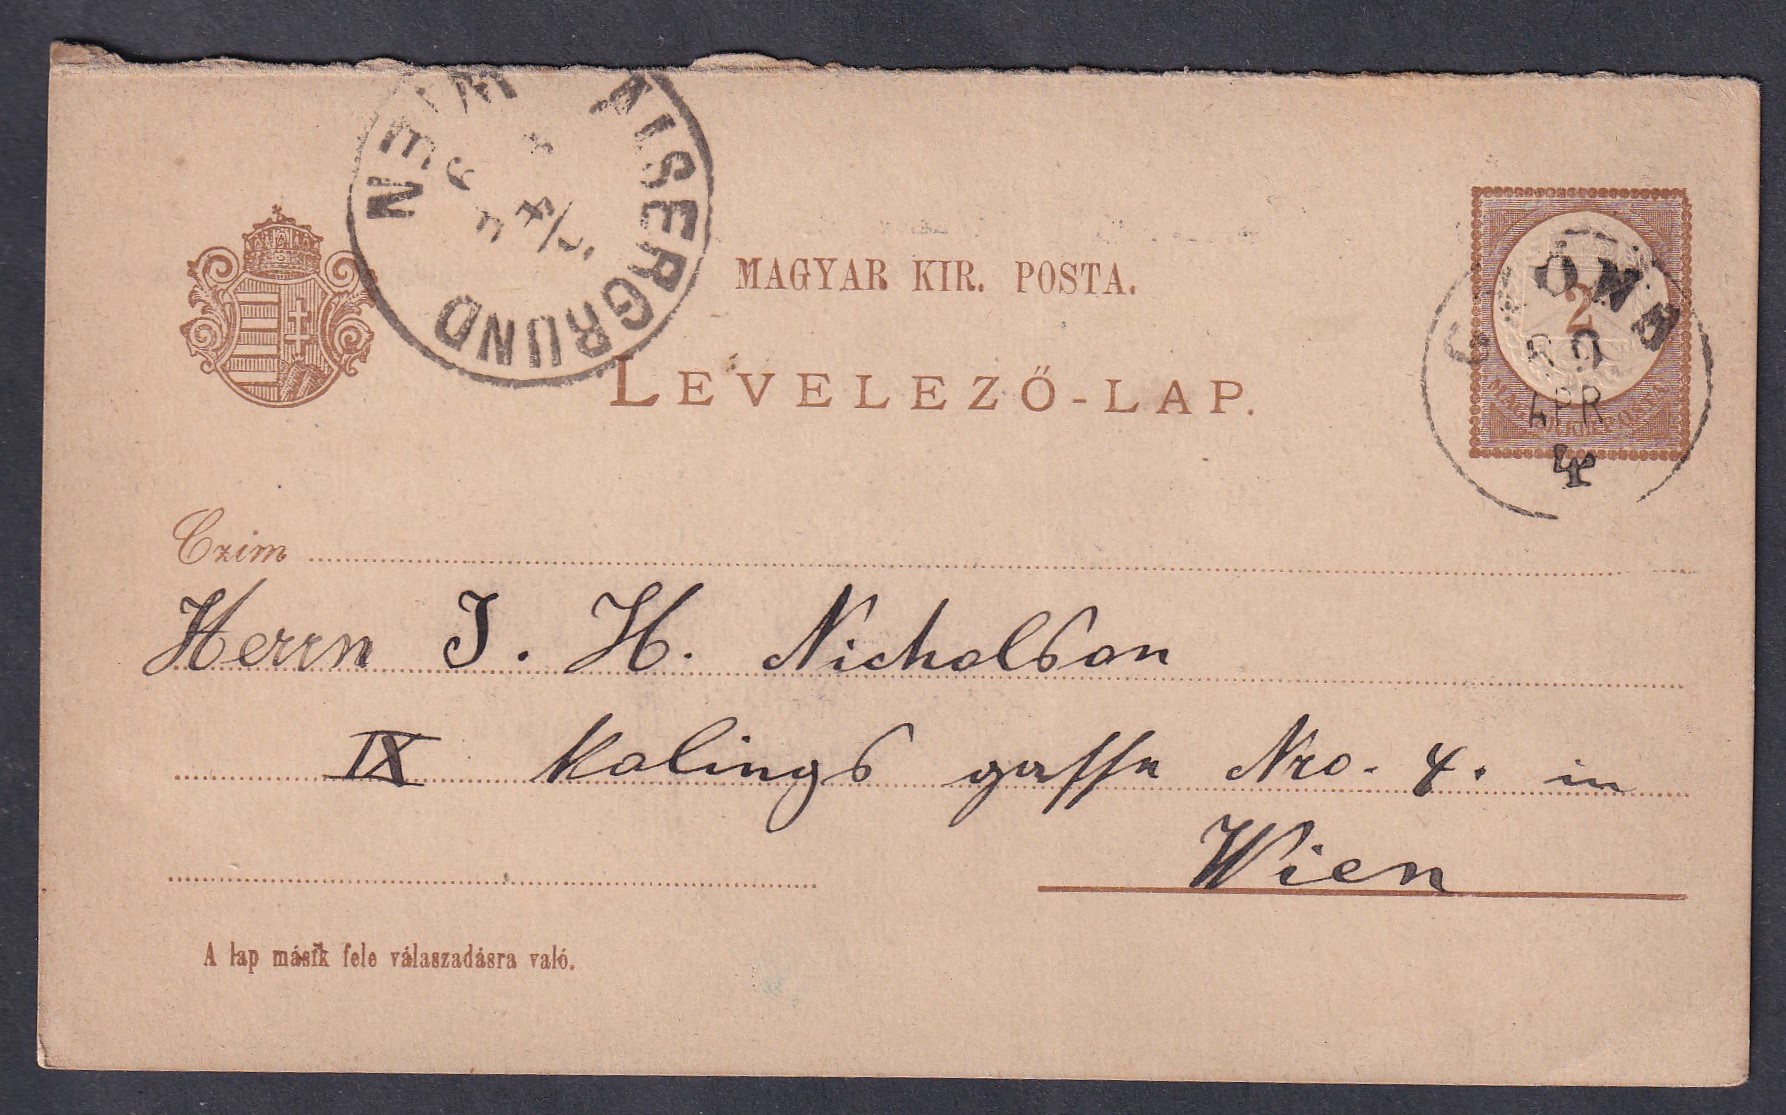 WIEN ALSERGRUND
MAGYAR KIR. POSTA.
2
LEVELEZŐ-LAP.
APR
4
Czim
Herrn J. H. Nicholson
IX Kolings gasse Nro. 4. in
Wien
A lap másik fele válaszadásra való.